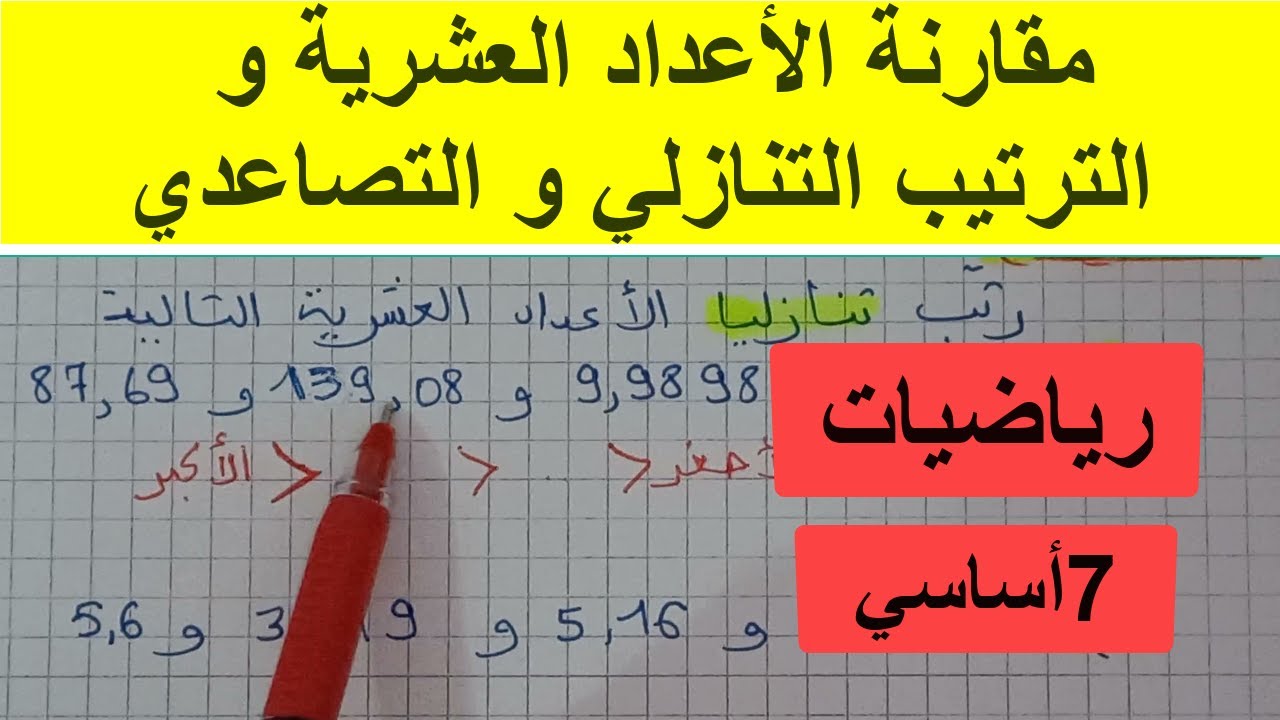 مقارنة الأعداد العشرية و
الترتيب التنازلي و التصاعدي
رتّب تنازليا الأعداد العشرية التالية
87,69 و 139,08 و 9,9898
الأكبر > > >
رياضيات
7أساسي
5,6 و 3 19 و 5,16 و